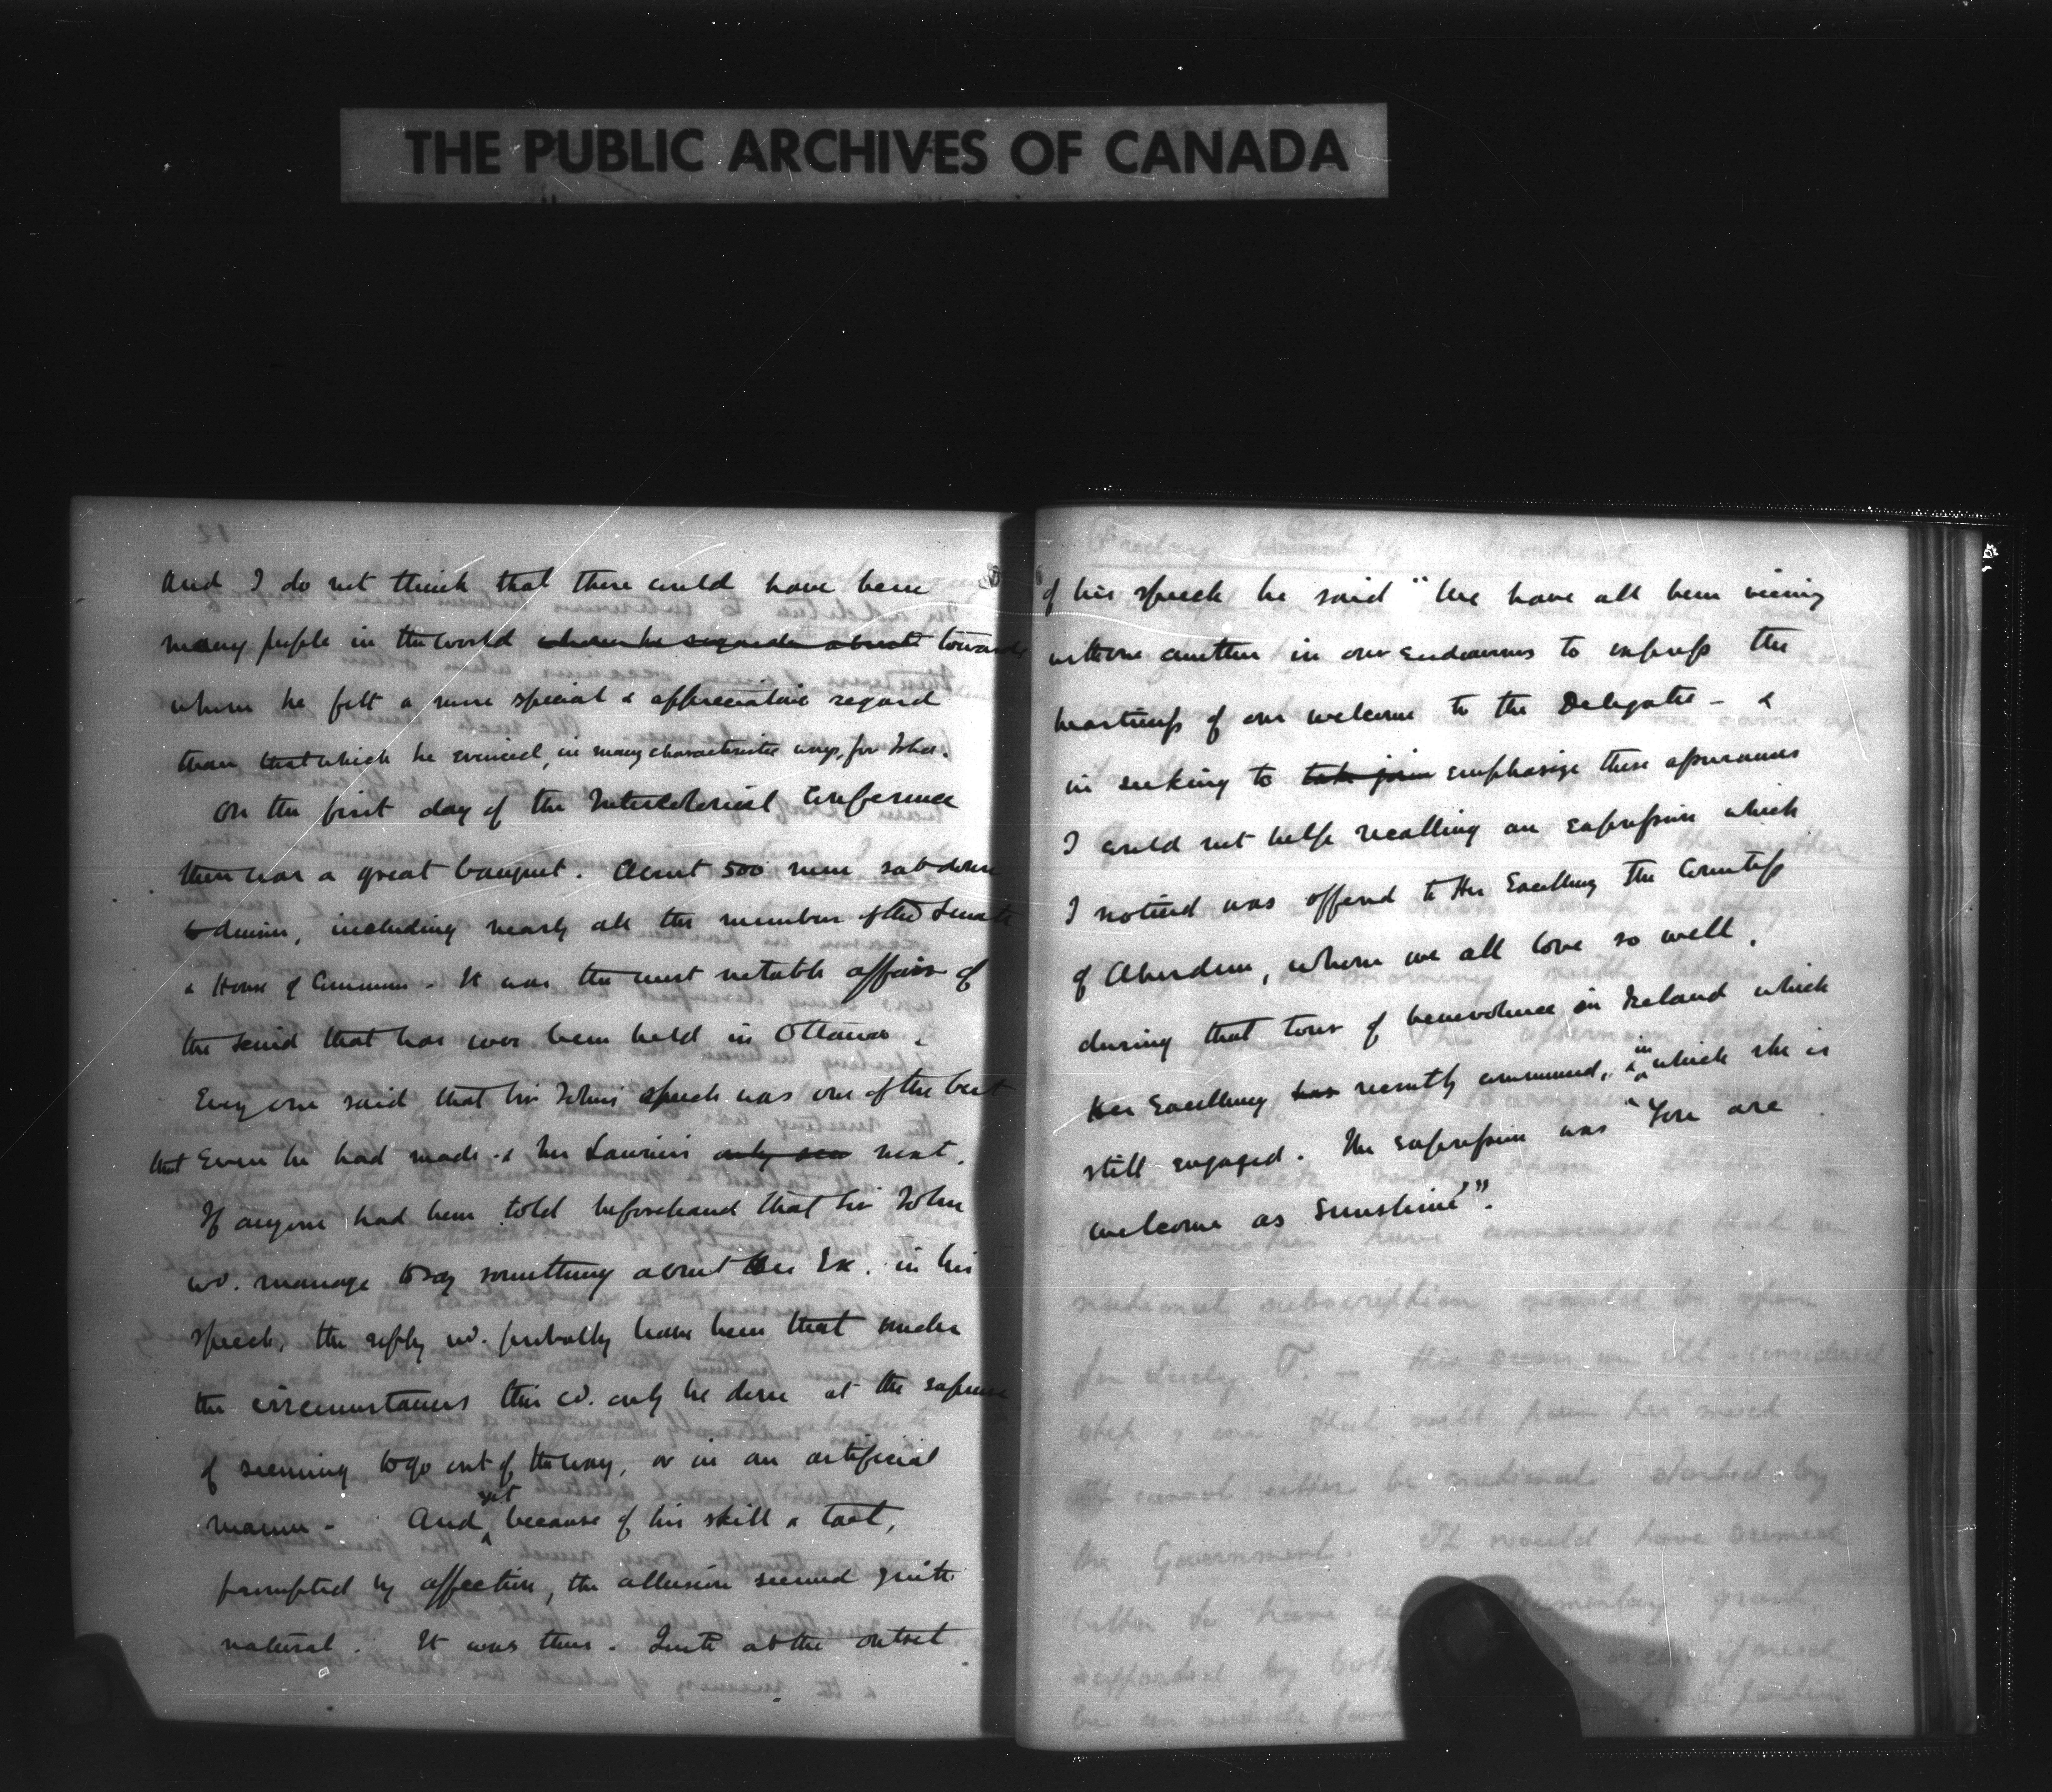 THE PUBLIC ARCHIVES OF CANADA
and I do not think that there could have been
many people in the world whom he regards about towards
whom he felt a more special & appreciative regard
than that which he evinced, in many characteristic ways, for Ishbel.
On the first day of the Intercolonial Conference
there was a great banquet. About 500 men sat down
to dinner, including nearly all the members of the Senate
& House of Commons. It was the most notable affair of
the kind that has ever been held in Ottawa.
Every one said that Sir John's speech was one of the best
that Even he had made & Mr Laurier's next.
If anyone had been told beforehand that Sir John
wd. manage to say something about Her Ex. in his
speech, the reply wd. probably have been that under
the circumstances this cd. only be done at the expense
of seeming to go out of the way, or in an artificial
manner - And yet because of his skill & tact,
prompted by affection, the allusion seemed quite
natural. It was thus. Quite at the outset
of his speech he said "We have all been vieing
with one another in our endeavours to express the
heartiness of our welcome to the Delegates - &
in seeking to take join emphasize these assurances
I could not help recalling an expression which
I noticed was offered to Her Excellency The Countess
of Aberdeen, whom we all love so well,
during that tour of benevolence in Ireland which
Her Excellency has recently commenced, & in which she is
still engaged. The expression was "You are
welcome as Sunshine'".